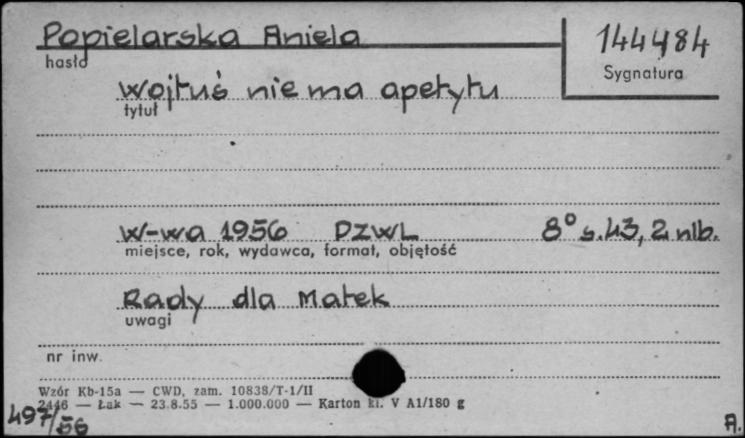 Popielarska Aniela
144484
hasło
Sygnatura
Wojtuś nie ma apetytu
tytuł
W-wa 1956 PZWL 8° s.43, 2 nlb.
miejsce, rok, wydawca, format, objętość
Rady dla Matek
uwagi
nr inw.
Wzór Kb-15a — CWD, zam. 10838/T-1/II
2446 — Łak — 23.8.55 — 1.000.000 — Karton kl. V A1/180 g
497/56
A.